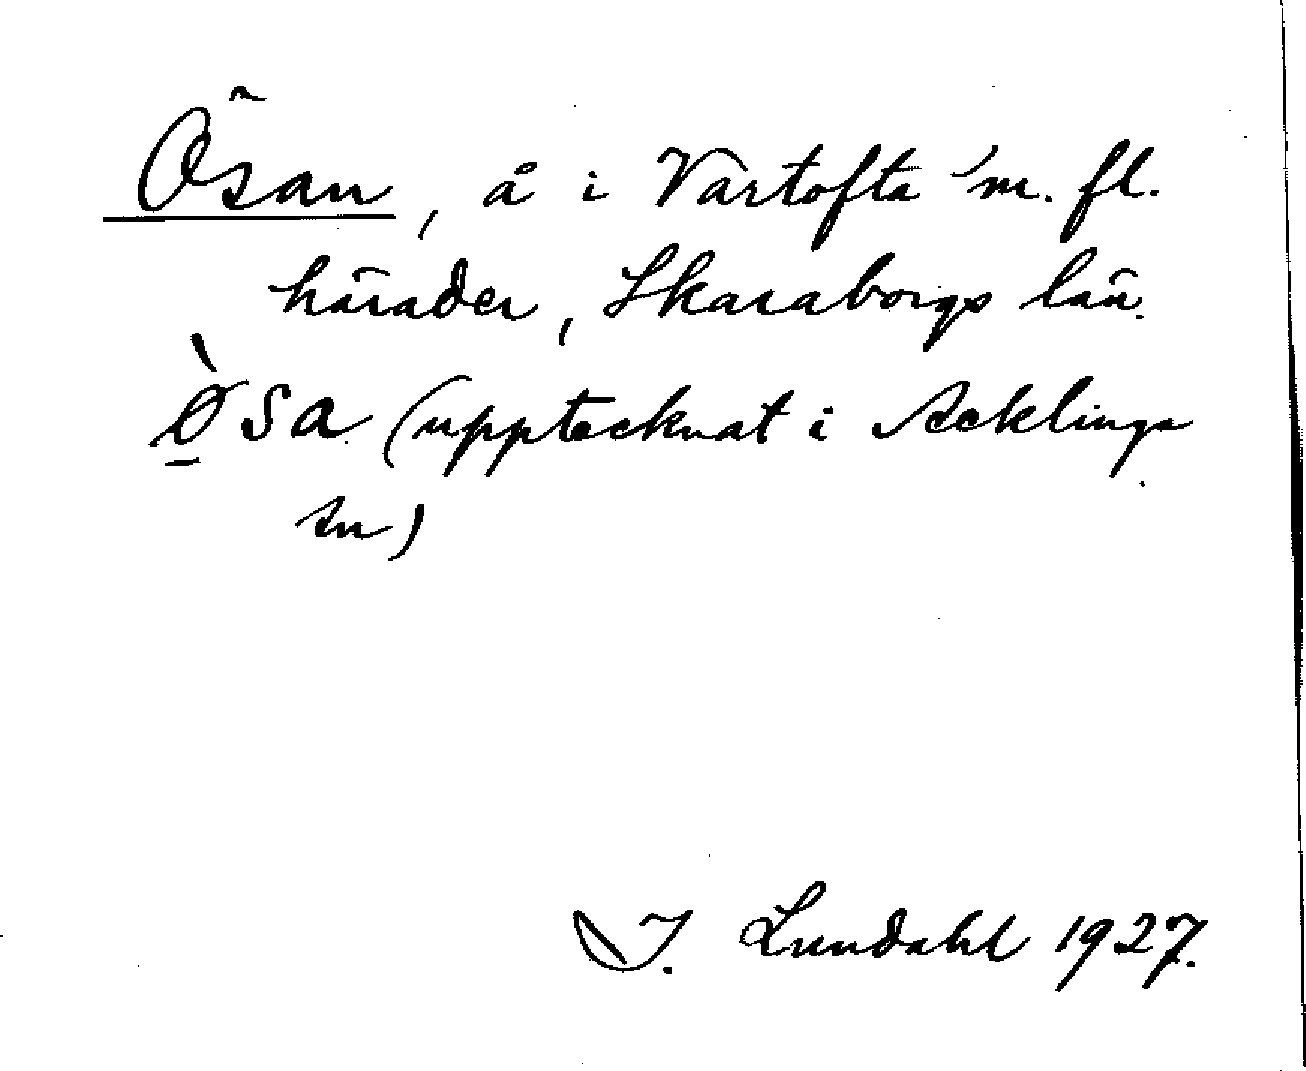 Ösan, å i Vartofta m. fl.
härader, Skaraborgs län.
ø̱̀sa (upptecknat i Acklinga
sn)
I. Lundahl 1927.